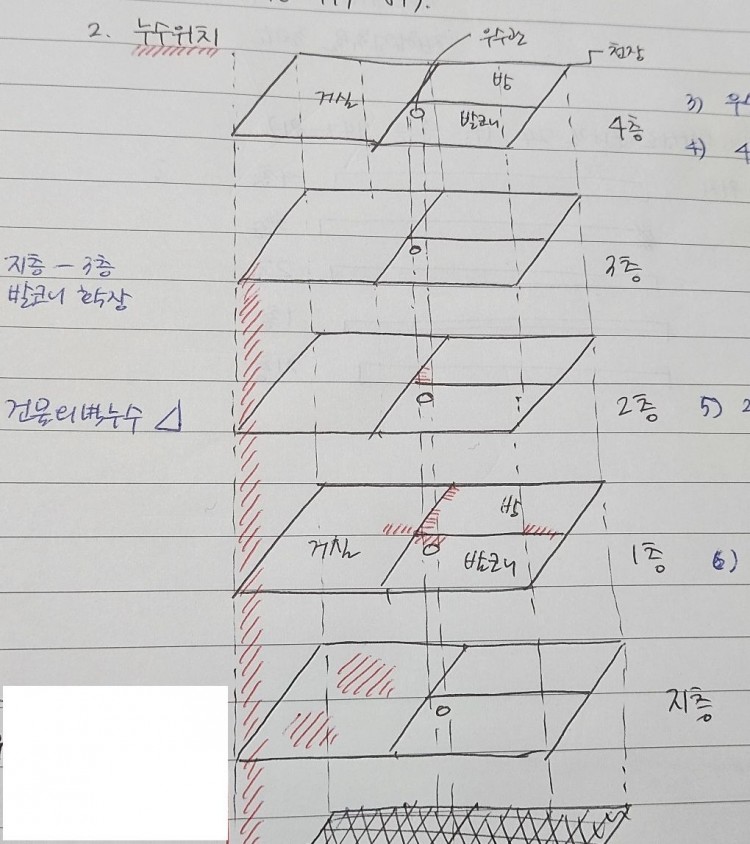 2. 누수위치
우수관
천장
방
거실
발코니
4층
3)
4) 4
3층
지층 - 3층
발코니 확장
2층
5) 2
건물외벽누수
방
거실
발코니
1층
6)
지층